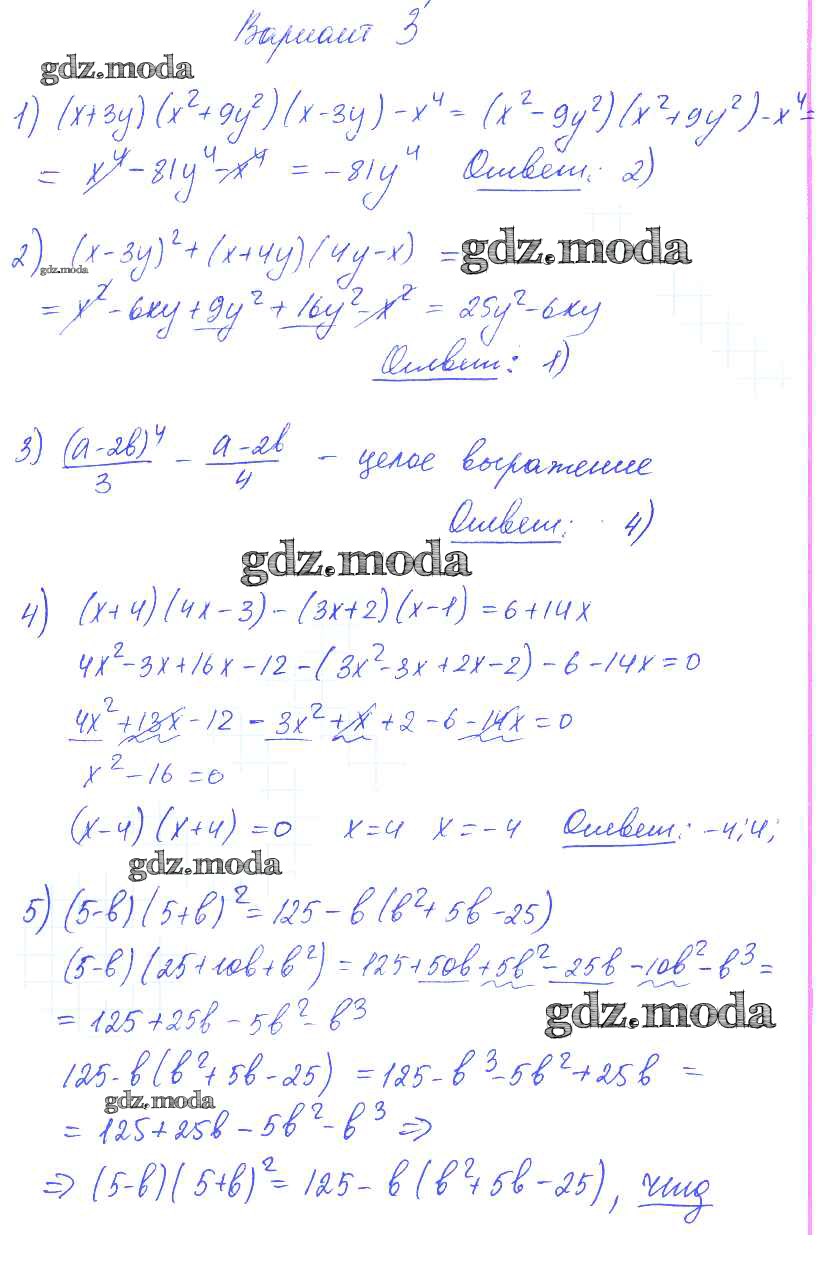 Вариант 3
gdz.moda
1) (x+3y)(x²+9y²)(x-3y)-x⁴= (x²-9y²)(x²+9y²)-x⁴=
= x⁴-81y⁴-x⁴ = -81y⁴ Ответ: 2)
2) (x-3y)²+(x+4y)(4y-x) =
gdz.moda
gdz.moda
= x²-6xy+9y²+16y²-x² = 25y²-6xy
Ответ: 1)
3) (a-2b)⁴/3 - a-2b/4 - целое выражение
Ответ: 4)
gdz.moda
4) (x+4)(4x-3)-(3x+2)(x-1)=6+14x
4x²-3x+16x-12-(3x²-3x+2x-2)-6-14x=0
4x²+13x-12-3x²+x+2-6-14x=0
x²-16=0
(x-4)(x+4)=0 x=4 x=-4 Ответ: -4;4;
gdz.moda
5) (5-b)(5+b)²=125-b(b²+5b-25)
(5-b)(25+10b+b²)=125+50b+5b²-25b-10b²-b³=
= 125+25b-5b²-b³
gdz.moda
125-b(b²+5b-25) =125-b³-5b²+25b =
gdz.moda
= 125+25b-5b²-b³ =>
=> (5-b)(5+b)²=125-b(b²+5b-25), чтд